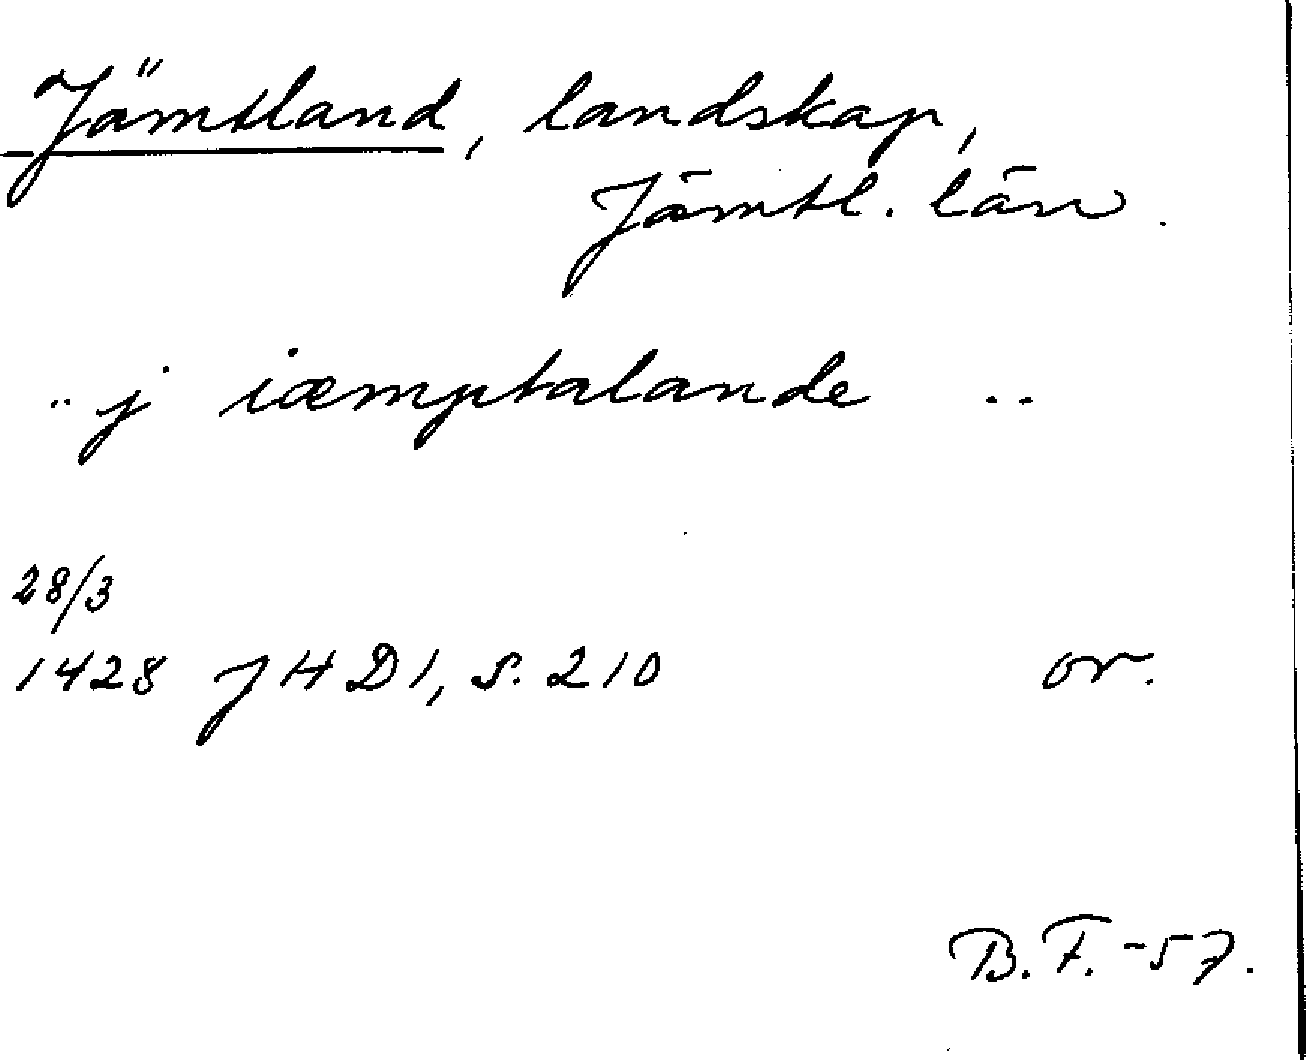 Jämtland, landskap,
Jämtl. län.
.. j iæmptalande ..
28/3
1428 JHD1, s. 210 or.
B.F. -57.